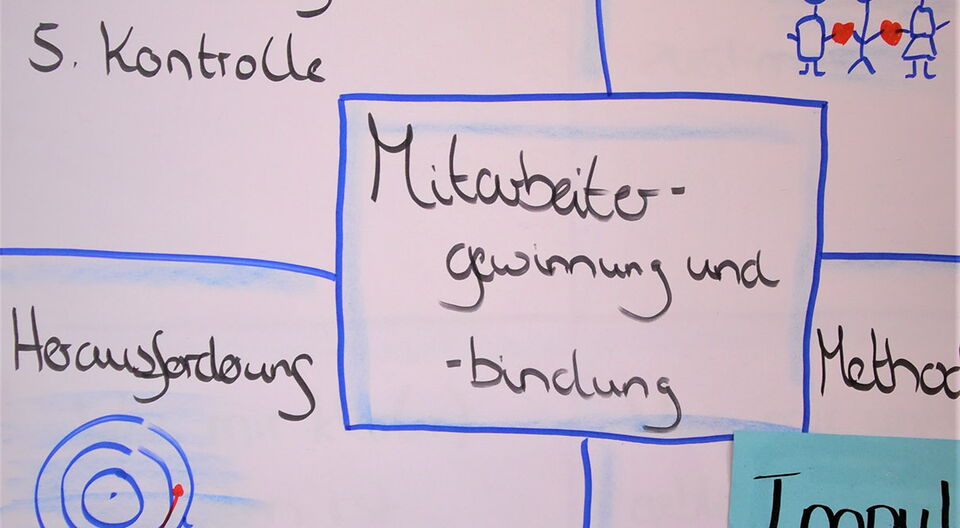 5. Kontrolle
Mitarbeiter-
gewinnung und
-bindung
Herausforderung